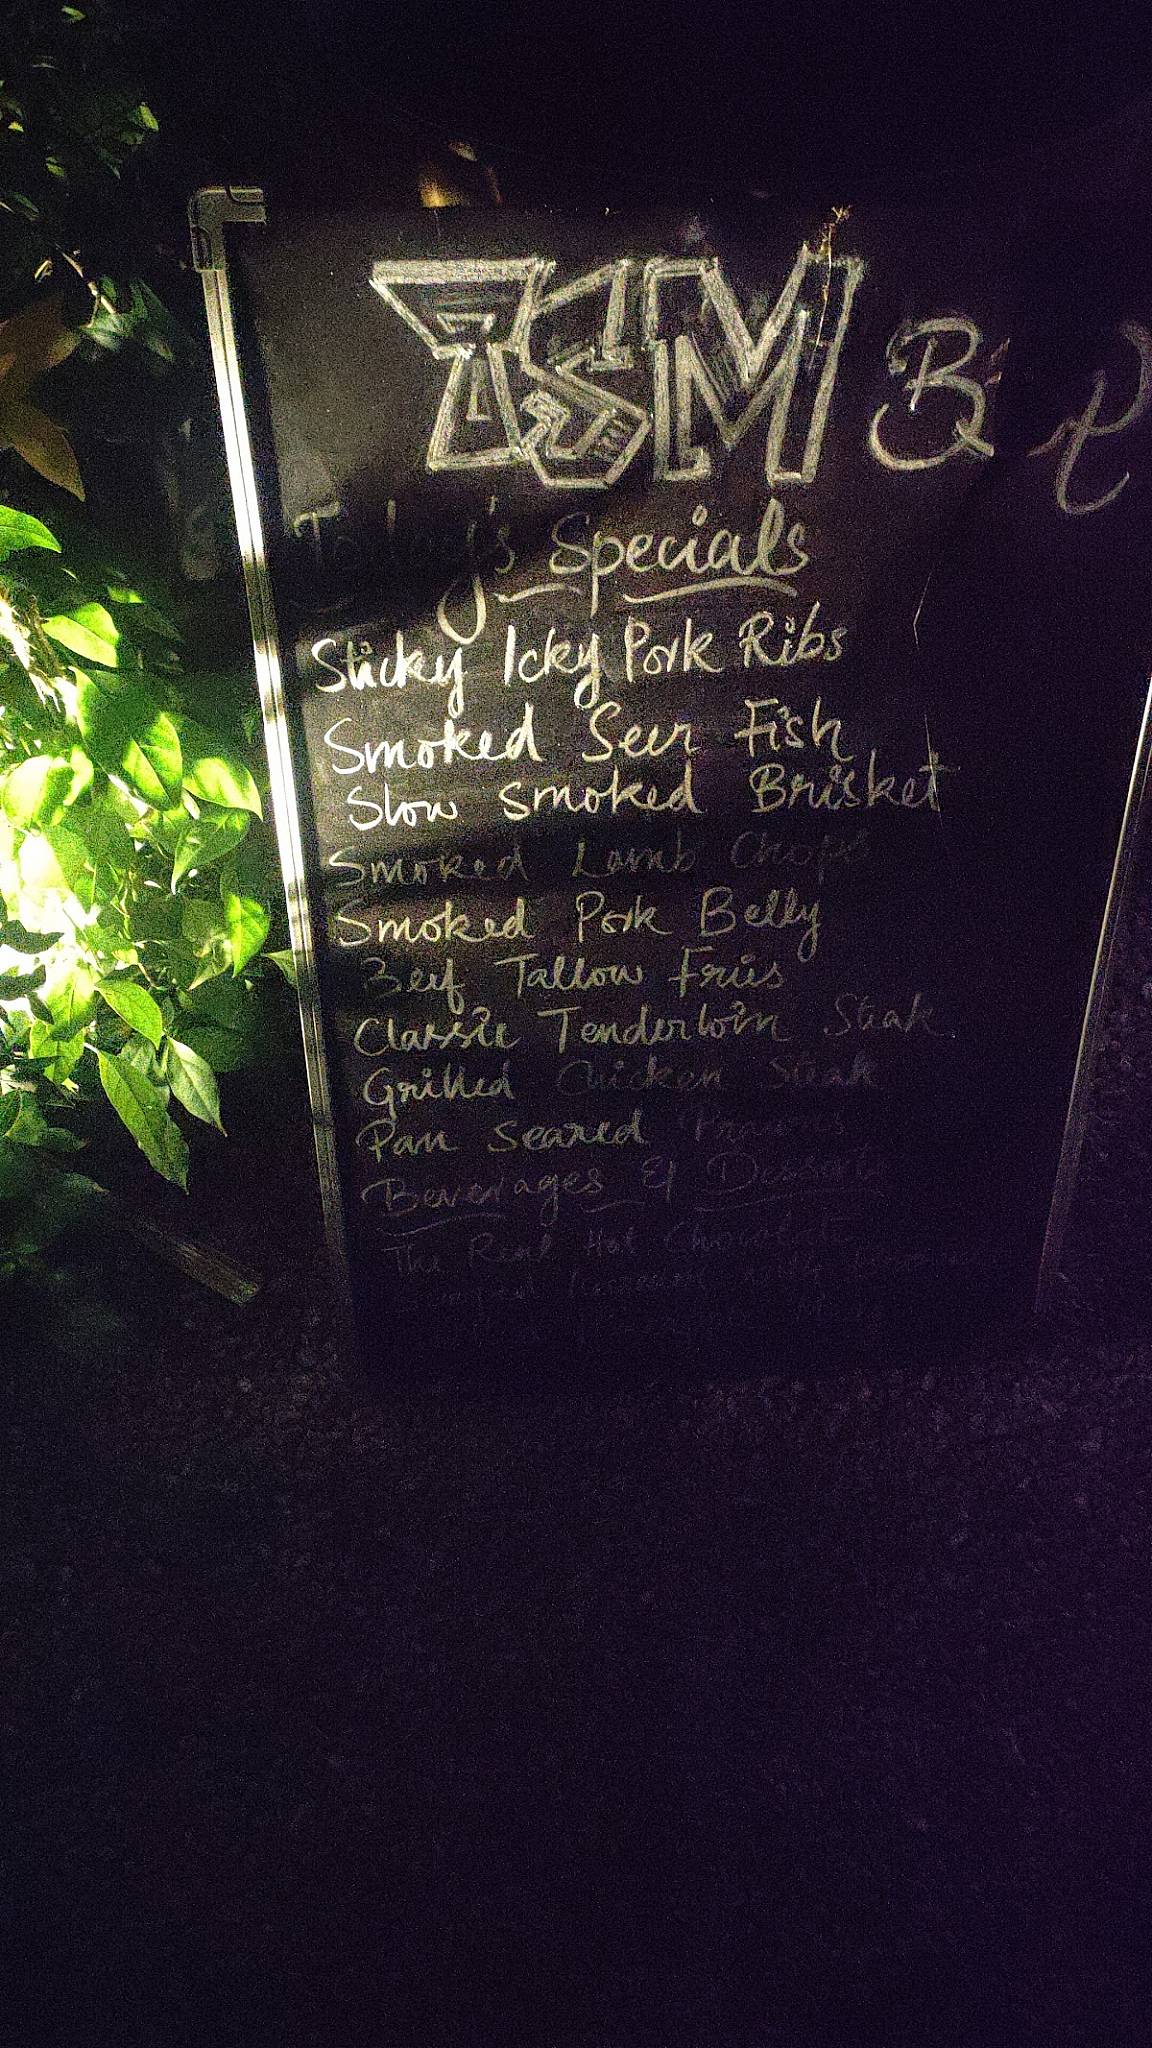 TSM B
Today's Specials
Sticky Icky Pork Ribs
Smoked Seer Fish
Slow smoked Brisket
Smoked Lamb Chops
Smoked Pork Belly
Beef Tallow Fries
Classic Tenderloin Steak
Grilled Chicken Steak
Pan Seared Prawns
Beverages & Desserts
The Real Hot Chocolate